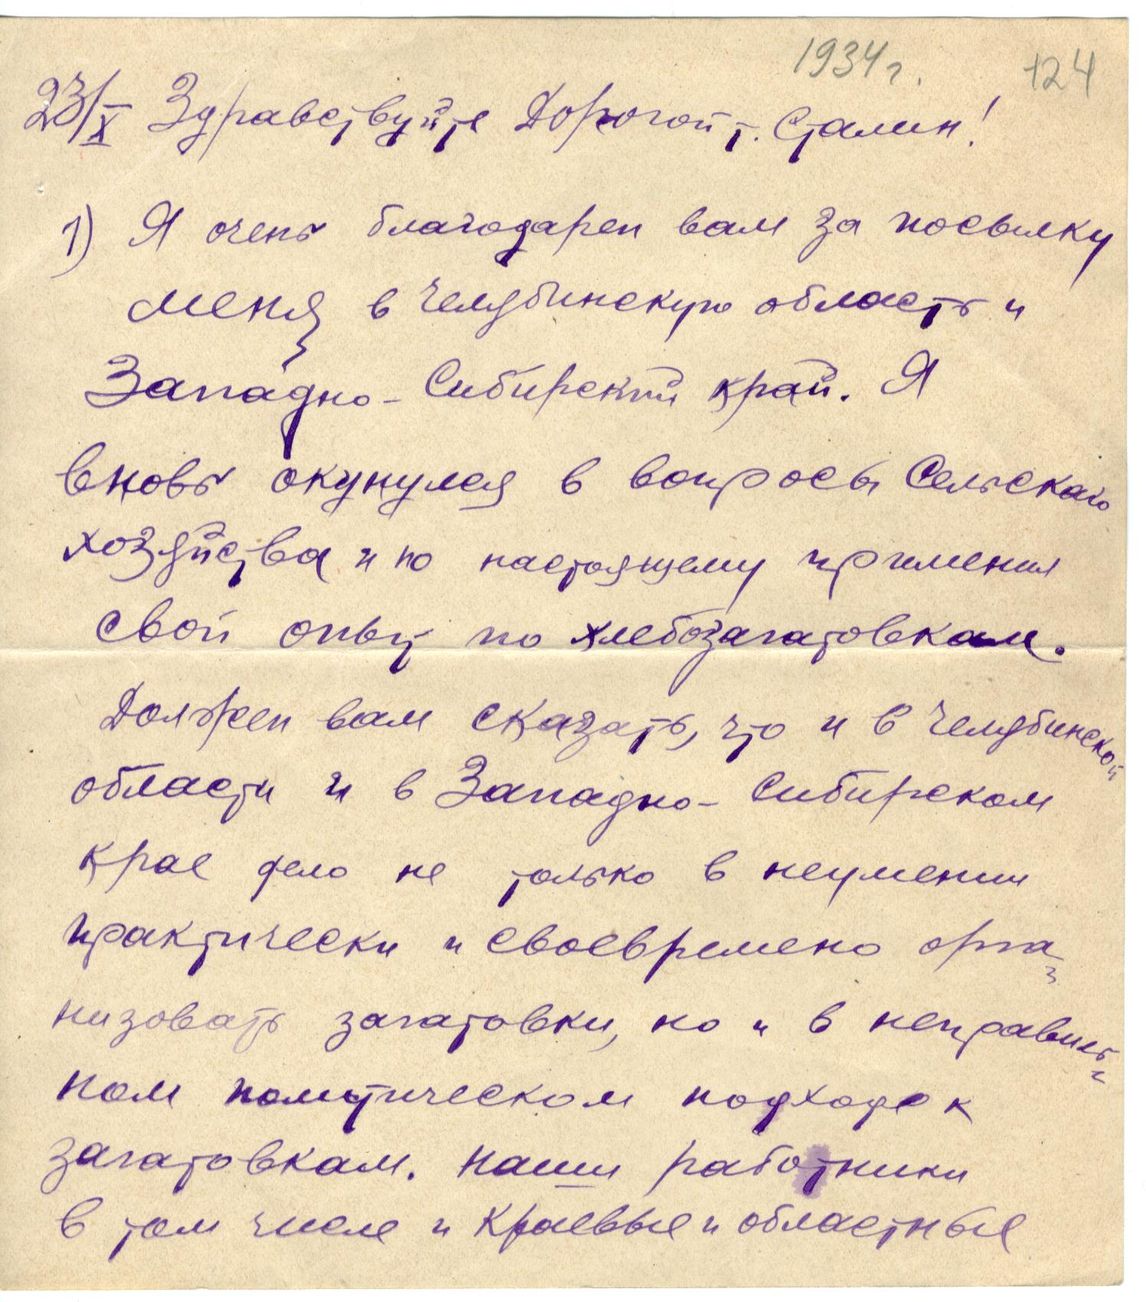 1934 г. 124
23/X Здравствуйте Дорогой т. Сталин!
1) Я очень благодарен вам за посылку
меня в Челябинскую область и
Западно-Сибирский край. Я
вновь окунулся в вопросы Сельского
хозяйства и по настоящему применил
свой опыт по хлебозагатовкам.
Должен вам сказать, что и в Челябинской
области и в Западно-Сибирском
крае дело не только в неумении
практически и своевремено орга-
низовать загатовки, но и в неправиль-
ном политическом подходе к
загатовкам. Наши работники
в том числе и Краевые и областные